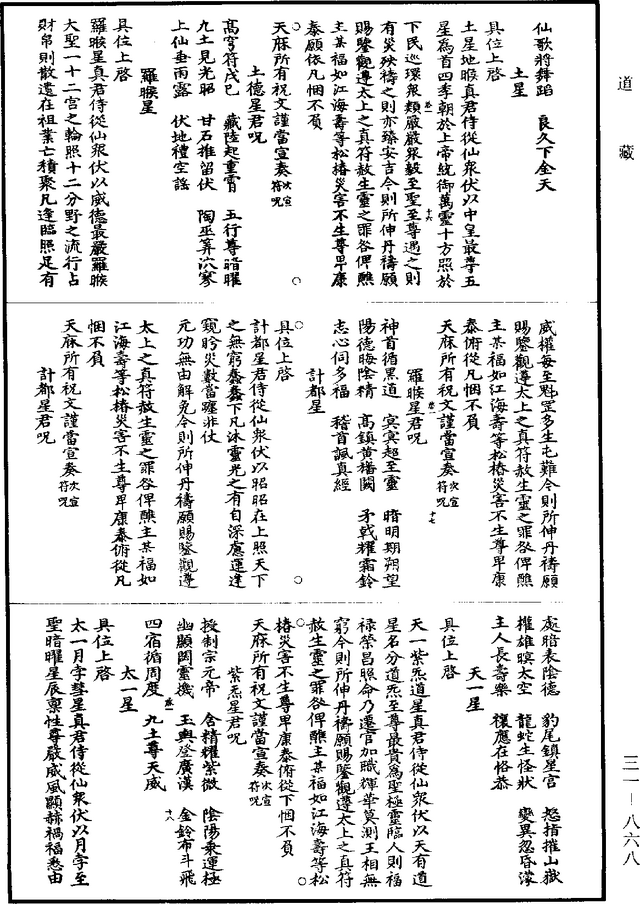 道藏
仙歌將舞蹈　良久下金天
土星
具位上啓
土星地睺真君侍從仙衆伏以中皇最尊五
星爲首四季朝於上帝統御萬靈十方照於
下民巡環衆類嚴嚴衆毅至聖至尊遇之則
有災殃禱之則亦臻安吉今則所伸丹禱願
賜鑒觀遵太上之真符赦生靈之罪咎俾醮
主某福如江海壽等松椿災害不生尊卑康
泰願依凡悃不負
天庥所有祝文謹當宣奏次宣符呪
土德星君呪
高穹符戊巳　藏陸起重霄　五行尊暗曜
九土見光昭　甘石推留伏　陶巫算泬寥
上仙垂雨露　伏地禮空謠
羅睺星
具位上啓
羅睺星真君侍從仙衆伏以威德最嚴羅睺
大聖一十二宮之輪照十二分野之流行占
財帛則散遺在祖業亡積聚凡逢臨照足有
威權每主魁罡多生屯難今則所伸丹禱願
賜鑒觀遵太上之真符赦生靈之罪咎俾醮
主某福如江海壽等松椿災害不生尊卑康
泰俯從凡悃不負
天庥所有祝文謹當宣奏次宣符呪
羅睺星君呪
神首循黑道　冥冥超至靈　暗明期朔望
陽德晦陰精　高鎮黃旛闕　矛戟耀霜鈴
志心伺多福　稽首諷真經
計都星
具位上啓
計都星君侍從仙衆伏以昭昭在上照天下
之無窮蠢蠢下凡沐靈光之有自深慮運逢
窺盻災數當躔非仗
元功無由解免今則所伸丹禱願賜鑒觀遵
太上之真符赦生靈之罪咎俾醮主某福如
江海壽等松椿災害不生尊卑康泰俯從凡
悃不負
天庥所有祝文謹當宣奏次宣符呪
計都星君呪
處暗表陰德　豹尾鎮星宮　怒指摧山嶽
權雄暝太空　龍蛇生怪狀　變異忽昏濛
主人長壽樂　禳應在恪恭
天一星
具位上啓
天一紫炁道星真君侍從仙衆伏以天有道
星名分道炁至尊最貴爲聖極靈臨人則福
祿榮昌照命乃遷官加職輝華莫測王相無
窮今則所伸丹禱願賜鑒觀遵太上之真符
赦生靈之罪咎俾醮主某福如江海壽等松
椿災害不生尊卑康泰俯從下悃不負
天庥所有祝文謹當宣奏次宣符呪
紫炁星君呪
授制宗元常　含精耀紫微　陰陽乘運極
幽顯闢靈機　玉輿登廣漢　金鈴布斗飛
四宿循周度　九土尊天威
太一星
具位上啓
太一月孛彗星真君侍從仙衆伏以月孛至
聖暗曜星辰稟性尊嚴威風顯赫禍福悉由
三一—八六八